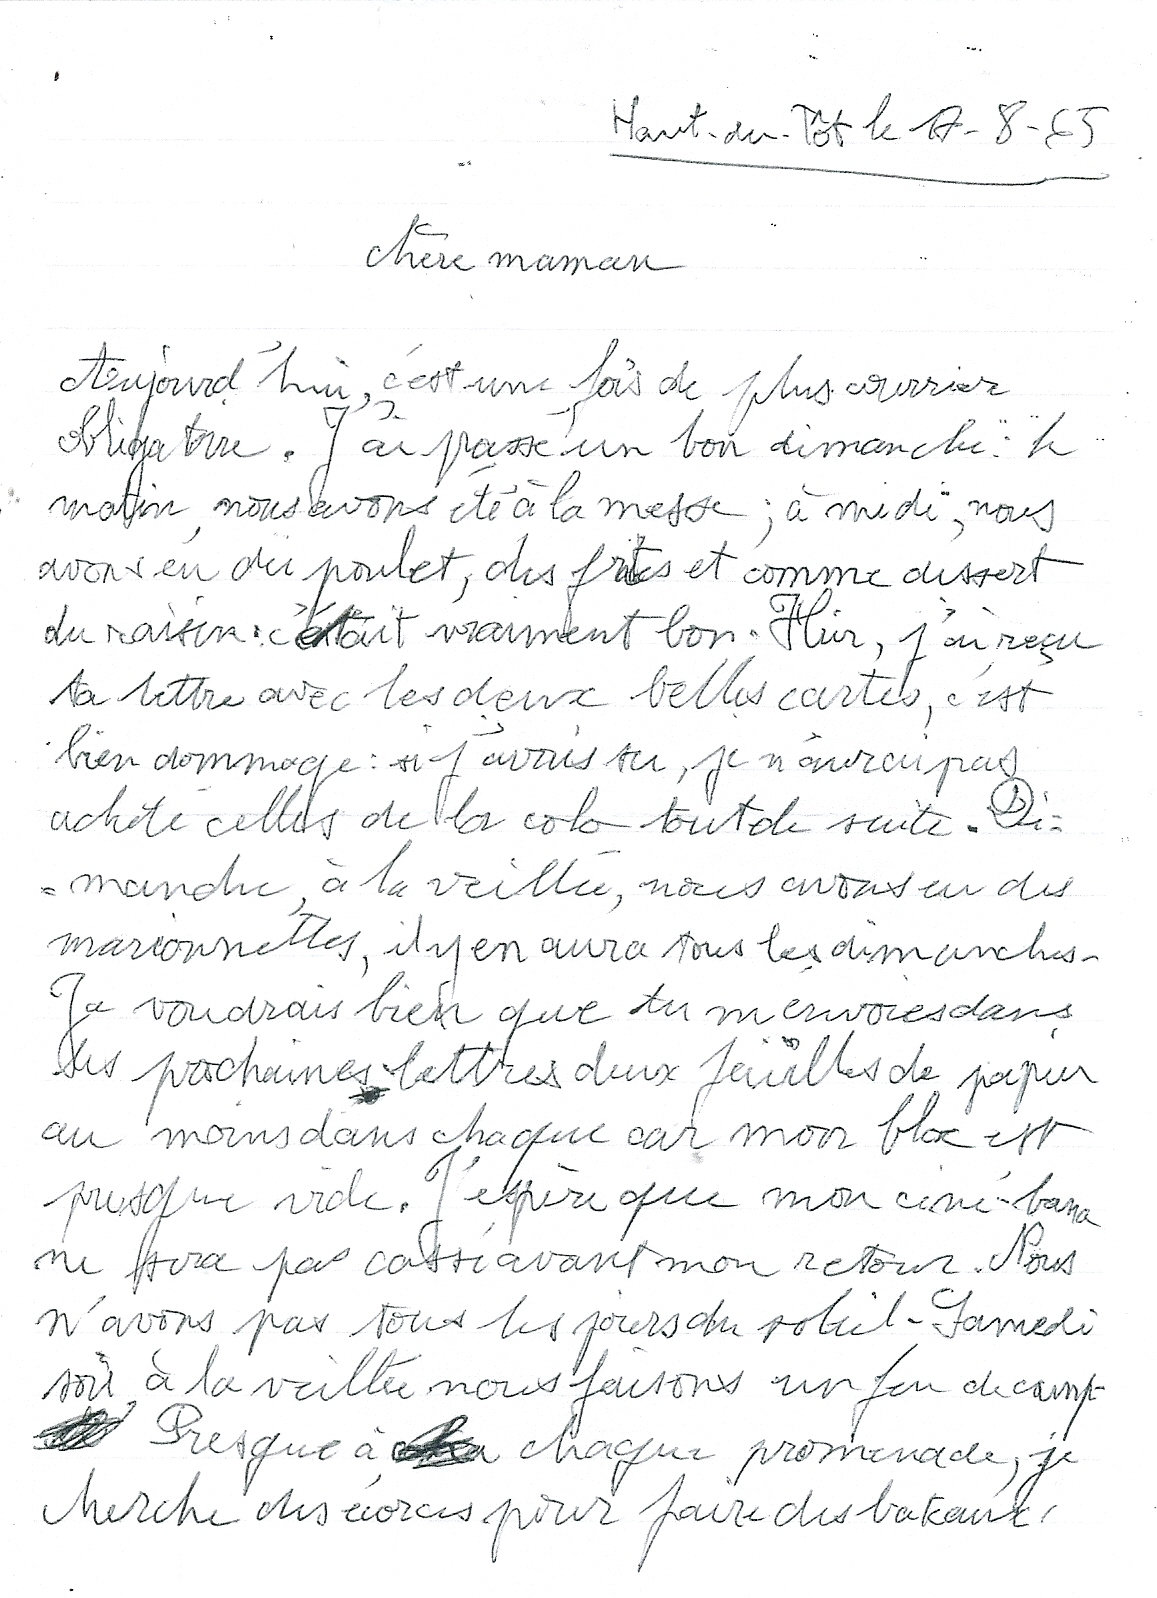 Haut-du-Tôt le 17-8-65
Chère maman
Aujourd'hui, c'est une fois de plus courrier
obligatoire. J'ai passé un bon dimanche : le
matin, nous avons été à la messe ; à midi, nous
avons eu du poulet, des frites et comme dessert
du raisin : c'était vraiment bon. Hier, j'ai reçu
ta lettre avec les deux belles cartes, c'est
bien dommage : si j'avais su, je n'aurai pas
acheté celles de la colo tout de suite. Di=
=manche, à la veillée, nous avons eu des
marionnettes, il y en aura tous les dimanches.
Je voudrais bien que tu m'envoies dans
tes prochaines lettres deux feuilles de papier
au moins dans chaque car mon bloc est
presque vide. J'espère que mon ciné-bana
ne sera pas cassé avant mon retour. Nous
n'avons pas tous les jours du soleil. Samedi
soir, à la veillée nous faisons un feu de camp
Presque à chaque promenade, je
cherche des écorces pour faire des bateaux.